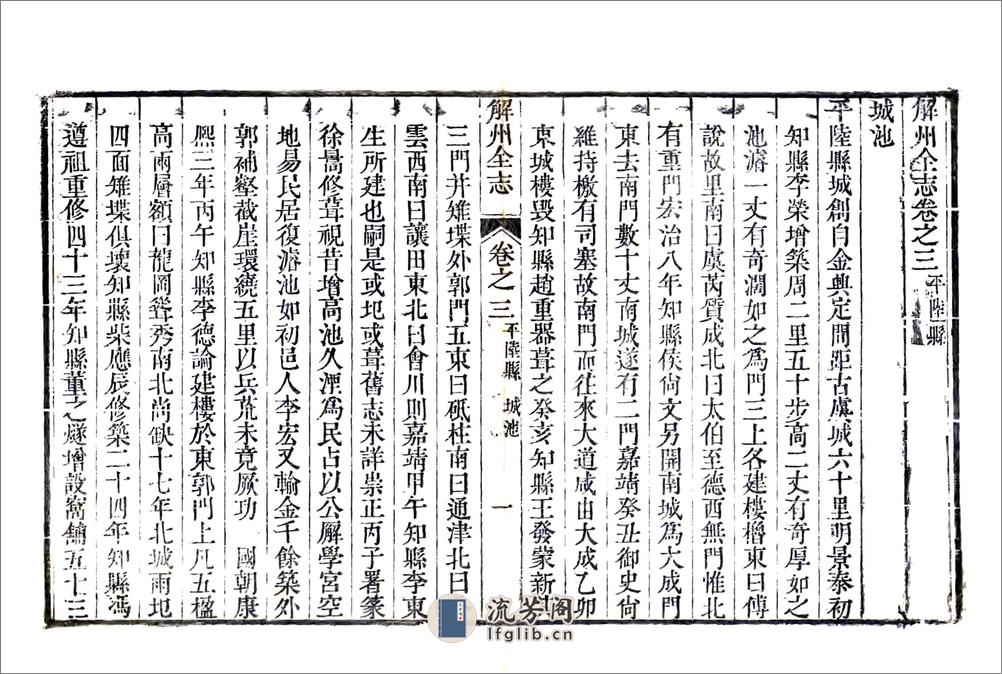 解州全志卷之三 平陸縣
城池
平陸縣城創自金興定間距古虞城六十里明景泰初
知縣李榮增築周二里五十步高二丈有奇厚如之
池濬一丈有奇濶如之爲門三上各建樓櫓東曰傅
說故里南曰虞芮質成北曰太伯至德西無門惟北
有重門宏治八年知縣侯尙文另開南城爲大成門
東去南門數十丈南城遂有二門嘉靖癸丑御史尙
維持檄有司塞故南門而往來大道咸由大成乙卯
東城樓毀知縣趙重器葺之癸亥知縣王發蒙新
解州全志 卷之三 平陸縣 城池 一
三門并雉堞外郭門五東曰砥柱南曰通津北曰
雲西南曰讓田東北曰會川則嘉靖甲午知縣李東
生所建也嗣是或圮或葺舊志未詳崇正丙子署篆
徐暠修葺視昔增高池久湮爲民占以公廨學宮空
地易民居復濬池如初邑人李宏又輸金千餘築外
郭補壑截崖環繞五里以兵荒未竟厥功 國朝康
熙三年丙午知縣李德論建樓於東郭門上凡五楹
高兩層額曰龍岡聳秀南北尚缺十七年北城雨圮
四面雉堞俱壞知縣柴應辰修築二十四年知縣馮
遵祖重修四十三年知縣董之燧增設窩舖五十三
流芳阁
lfglib.cn